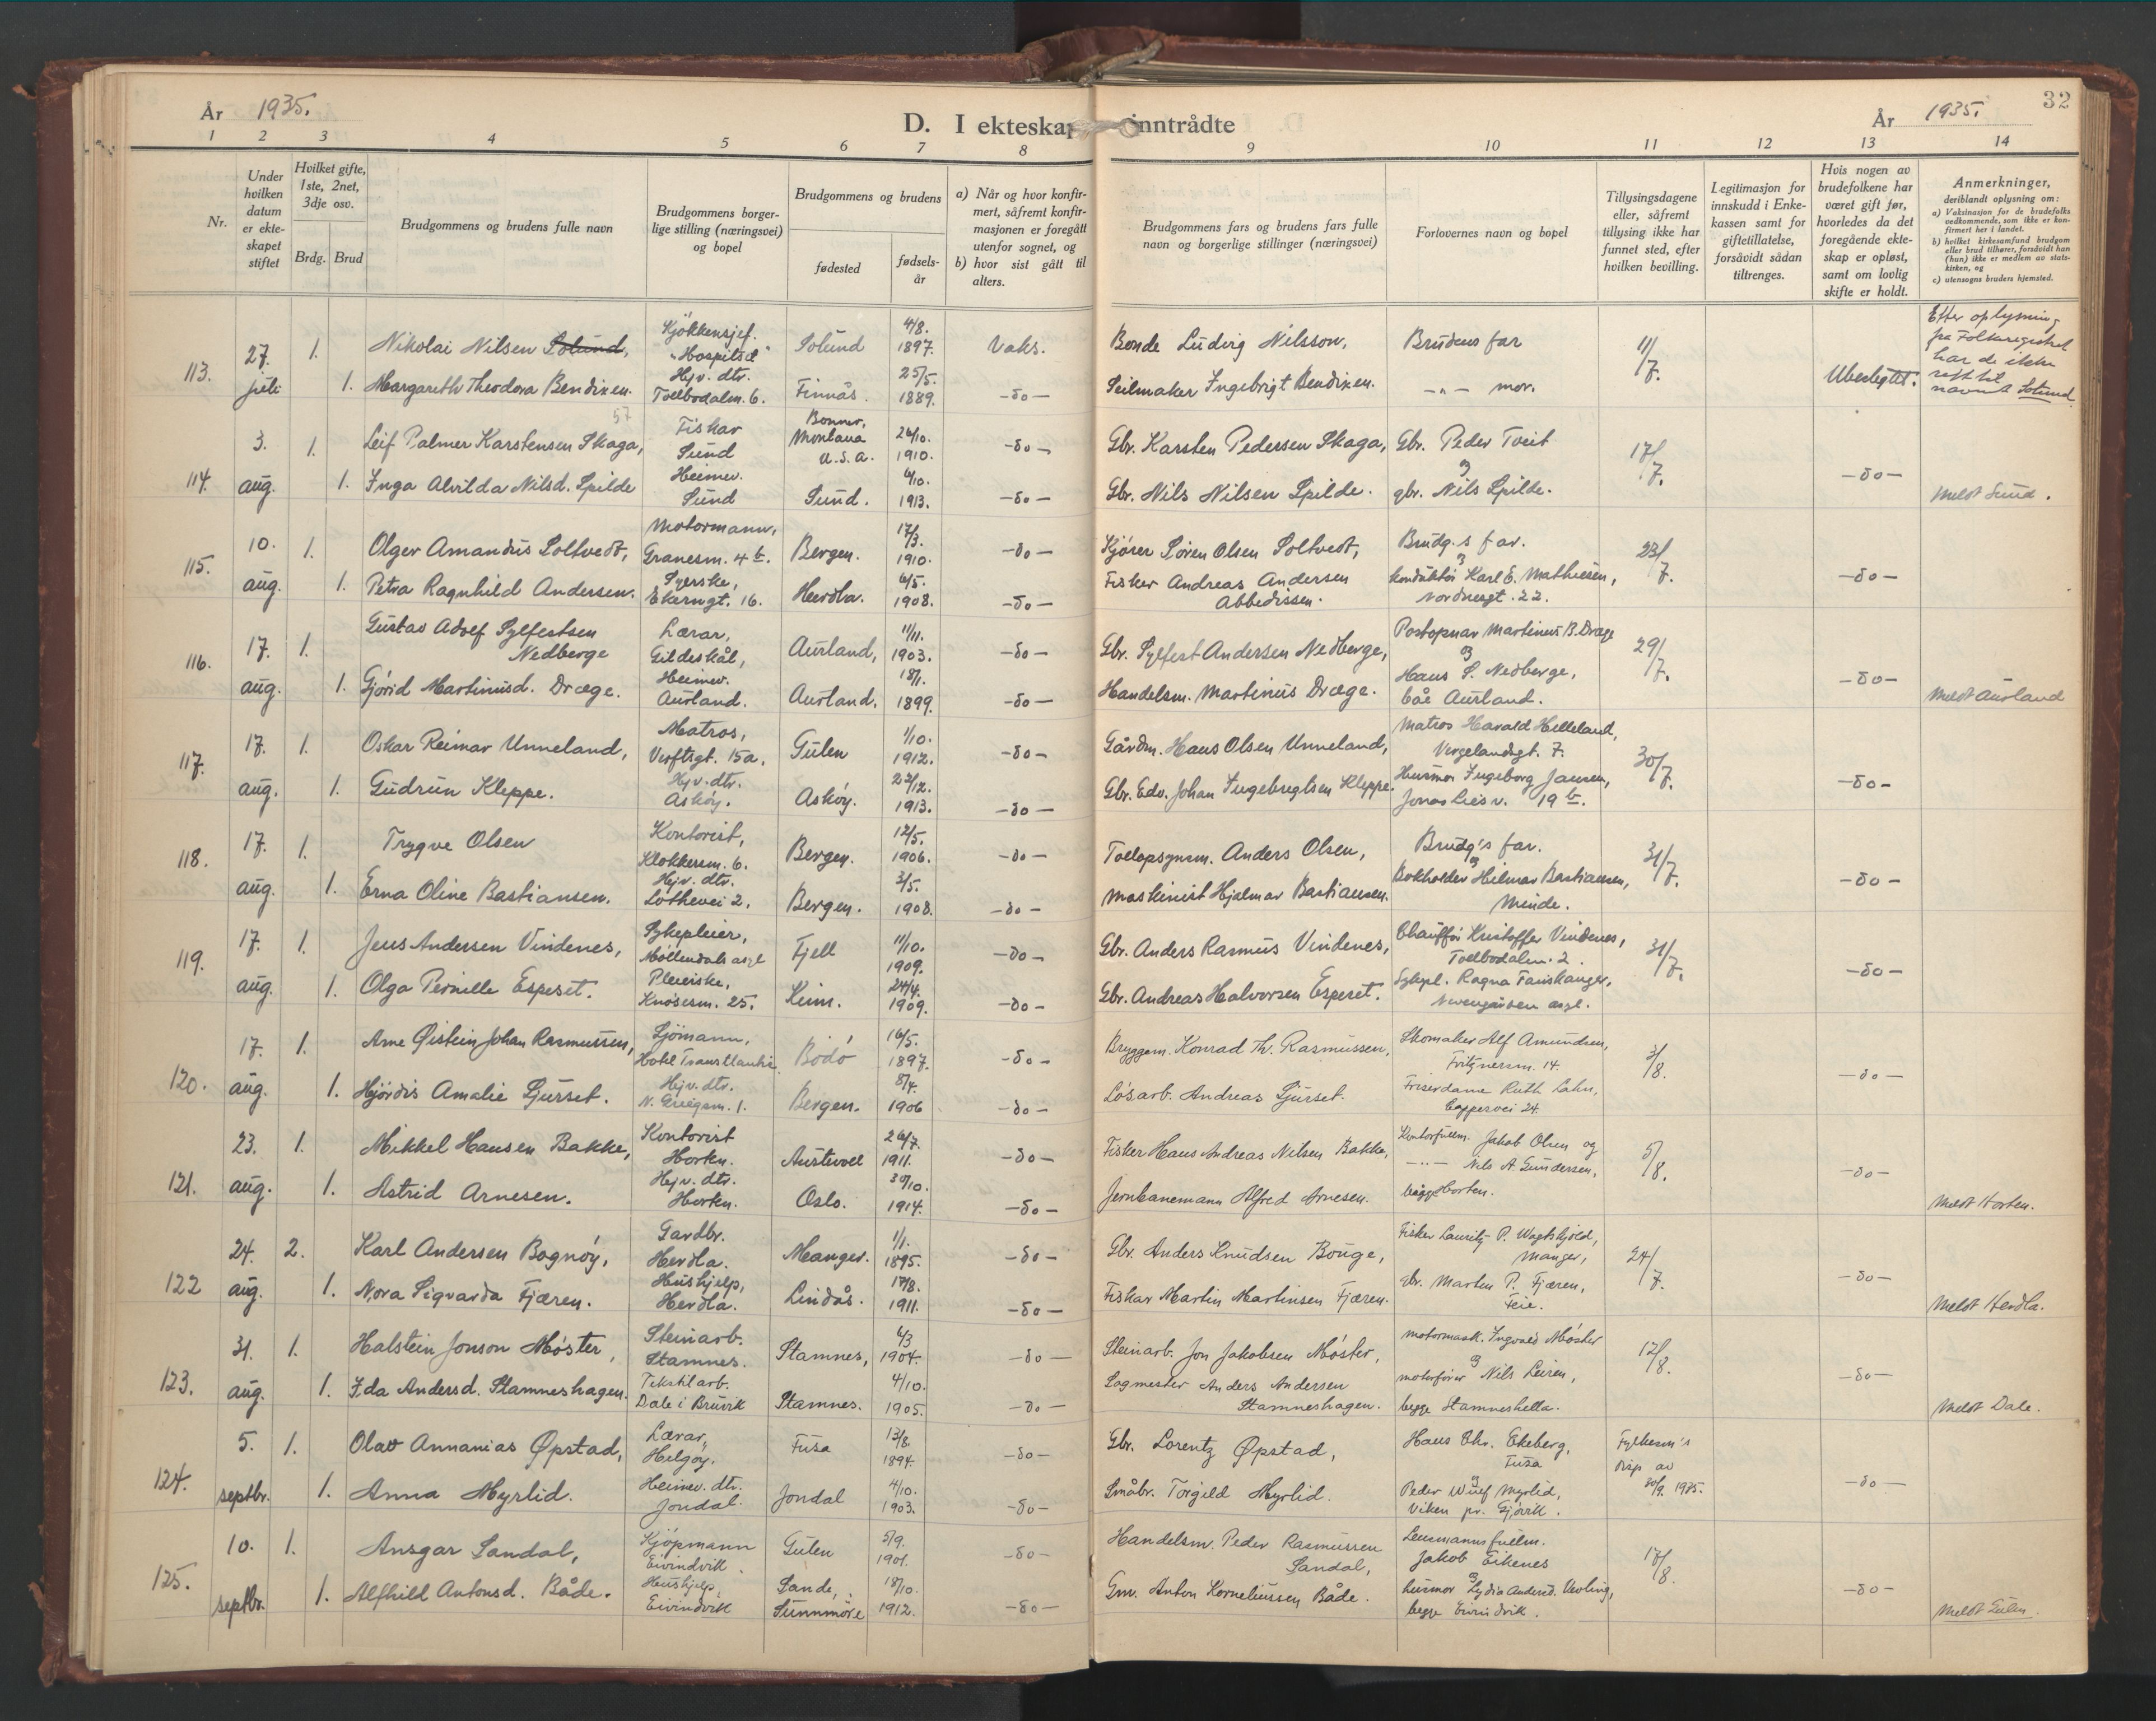 År 1935.
D. I ekteskap inntrådte
År 1935.
32
1 2 3 4 5 6 7 8 9 10 11 12 13 14
Nr.
Under hvilken datum er ekteskapet stiftet
Hvilket gifte, 1ste, 2net, 3dje osv.
Brdg. Brud
Brudgommens og brudens fulle navn
Brudgommens borgerlige stilling (næringsvei) og bopel
Brudgommens og brudens
fødested
fødselsår
a) Når og hvor konfirmert, såfremt konfirmasjonen er foregått utenfor sognet, og
b) hvor sist gått til alters.
Brudgommens fars og brudens fars fulle navn og borgerlige stillinger (næringsvei)
Forlovernes navn og bopel
Tillysingsdagene eller, såfremt tillysing ikke har funnet sted, efter hvilken bevilling.
Legitimasjon for innskudd i Enkekassen samt for giftetillatelse, forsåvidt sådan tiltrenges.
Hvis nogen av brudefolkene har været gift før, hvorledes da det foregående ekteskap er opløst, samt om lovlig skifte er holdt.
Anmerkninger, deriblandt oplysning om:
a) Vaksinasjon for de brudefolks vedkommende, som ikke er konfirmert her i landet.
b) hvilket kirkesamfund brudgom eller brud tilhører, forsåvidt han (hun) ikke er medlem av statskirken, og
c) utensogns bruders hjemsted.
113. 27. juli 1. Nikolai Nilsen Solund, Kjøkkensjef. "Hospitsd" Solund 4/8. 1897. Vaks. Bonde Ludvig Nilsson, Brudens far 11/7. Ubeslegtet. Etter oplysning fra Folkeregistret har de ikke rett til navnet Solund.
1. Margareth Theodora Bendixen. Hjv. dtr. Tollbodalm. 6. Finnås. 25/5. 1889. -do- Seilmaker Ingebrigt Bendixen. -"- mor.
57
114. 3. aug. 1. Leif Palmer Karstensen Skaga, Fiskar Sund Bonner, Montana U.S.A. 26/10. 1910. -do- Gbr. Karsten Pedersen Skaga, Gbr. Peder Tveit og 17/7. -do- Meldt Sund.
1. Inga Alvilda Nilsd. Spilde Heimev. Sund Sund. 6/10. 1913. -do- Gbr. Nils Nilsen Spilde. gbr. Nils Spilde.
115. 10. aug. 1. Olger Amandus Soltvedt, Motormann, Granesm. 4 b. Bergen. 17/3. 1910. -do- Kjører Søren Olsen Soltvedt, Brudg.s far. og 23/7. -do-
1. Petra Ragnhild Andersen. Syerske, Ekerngt. 16. Herdla. 6/5. 1908. -do- Fisker Andreas Andersen Abbedissen. konduktør Karl E. Mathiesen, Nordnesgt. 22.
116. 17. aug. 1. Gustav Adolf Sylfestsen Nedberge Lærar, Gildeskål, Aurland, 11/11. 1903. -do- Gbr. Sylfest Andersen Nedberge, Postopnar Martinus B. Dræge og 29/7. -do- Meldt Aurland
1. Gjørid Martinusd. Dræge. Heimev. Aurland. Aurland. 18/1. 1899. -do- Handelsm. Martinus Dræge. Hans S. Nedberge, båe Aurland.
117. 17. aug. 1. Oskar Reimar Unneland, Matros, Verftsgt. 15a. Gulen 1/10. 1912. -do- Gårdm. Hans Olsen Unneland, Matros Harald Helleland, Vergelandsgt. 7. 30/7. -do-
1. Gudrun Kleppe. Hjv. dtr. Askøy. Askøy. 22/12. 1913. -do- Gbr. Edv. Johan Ingebregtsen Kleppe. Husmor Ingeborg Jansen, Jonas Liesv. 19 b.
118. 17. aug. 1. Trygve Olsen Kontorist, Klokkersm. 6. Bergen. 12/5. 1906. -do- Tollopsynsm. Anders Olsen, Brudg's far. og 31/7. -do-
1. Erna Oline Bastiansen. Hjv. dtr. Lothevei 2. Bergen. 3/5. 1908. -do- Maskinist Hjalmar Bastiansen. Bokholder Hilmar Bastiansen, Minde.
119. 17. aug. 1. Jens Andersen Vindenes, Sykepleier, Møllendals asyl Fjell 11/10. 1909. -do- Gbr. Anders Rasmus Vindenes, Chauffør Kristoffer Vindenes, Tollbodalm. 2. 31/7. -do-
1. Olga Pernille Espeset. Pleierske, Knøsesm. 25. Keim. 24/4. 1909. -do- Gbr. Andreas Halvorsen Espeset. Sykepl. Ragna Fanskanger, Nevengården asyl.
120. 17. aug. 1. Arne Øistein Johan Rasmussen, Sjømann, Hotel Transatlantic. Bodø 16/5. 1897. -do- Bryggem. Konrad Th. Rasmussen, Skomaker Alf Amundsen, Fritznersm. 14. 3/8. -do-
1. Hjørdis Amalie Sjurset. Hjv. dtr. N. Griegsm. 1. Bergen. 8/4. 1906 -do- Løsarb. Andreas Sjurset. Friserdame Ruth Lahn, Cappesvei 24.
121. 23. aug. 1. Mikkel Hansen Bakke, Kontorist Horten. Austevoll 26/7. 1911. -do- Fisker Hans Andreas Nilsen Bakke, Kontorfullm. Jakob Olsen og 5/8. -do- Meldt Horten.
1. Astrid Arnesen. Hjv. dtr. Horten. Oslo. 30/10. 1914. -do- Jernbanemann Alfred Arnesen. -"- Nils A. Gundersen, begge Horten.
122 24. aug. 2. Karl Andersen Bognøy, Gardbr. Herdla. Manger. 1/1. 1895. -do- Gbr. Anders Knudsen Bouge, Fisker Lauritz P. Wagtskjold, Manger, 24/7. -do- Meldt Herdla.
1. Nora Sigvarda Fjæren. Hushjelp, Herdla. Lindås. 17/8. 1911. -do- Fiskar Martin Martinsen Fjæren. gbr. Marten P. Fjæren, Feie.
123. 31. aug. 1. Halstein Jonson Møster, Steinarb. Stamnes. Stamnes, 6/3 1904. -do- Steinarb. Jon Jakobsen Møster, motormask. Ingvald Møster og 12/8. -do- Meldt Dale.
1. Ida Andersd. Stamneshagen. Tekstilarb. Dale i Bruvik Stamnes. 4/10. 1905. -do- Sagmester Anders Andersen Stamneshagen. motorfører Nils Leiren, begge Stamneshella.
124. 5. septbr. 1. Olav Annanias Øpstad, Lærar, Helgøy. Fusa 13/8. 1894. -do- Gbr. Lorentz Øpstad, Hans Chr. Ekeberg, Fusa og Fylkesm's disp av 30/9. 1935. -do-
1. Anna Myrlid. Heimev. dtr. Jondal. Jondal 4/10. 1903. -do- Småbr. Torgeld Myrlid. Peder Wulf Myrlid, Viken pr. Gjøvik.
125. 10. septbr. 1. Ansgar Sandal, Kjøpmann Eivindvik. Gulen 5/9. 1901. -do- Handelsm. Peder Rasmussen Sandal, Lensmannsfullm. Jakob Eikenes og 17/8. -do- Meldt Gulen.
1. Alfhild Antonsd. Både. Hushjelp, Eivindvik Sande, Sunnmøre 18/10. 1912. -do- Gm. Anton Korneliussen Både. husmor Lydia Andersd. begge Eivindvik.